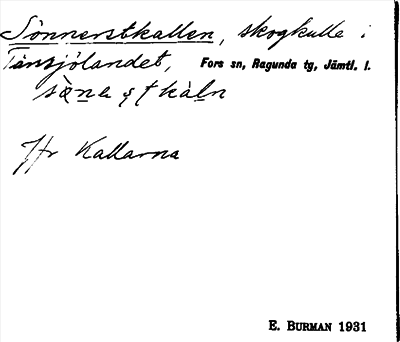 Sönnerstkallen, skogkulle i
Tansjölandet, Fors sn, Ragunda tg, Jämtl. l.
Jfr Kallarna
E. BURMAN 1931